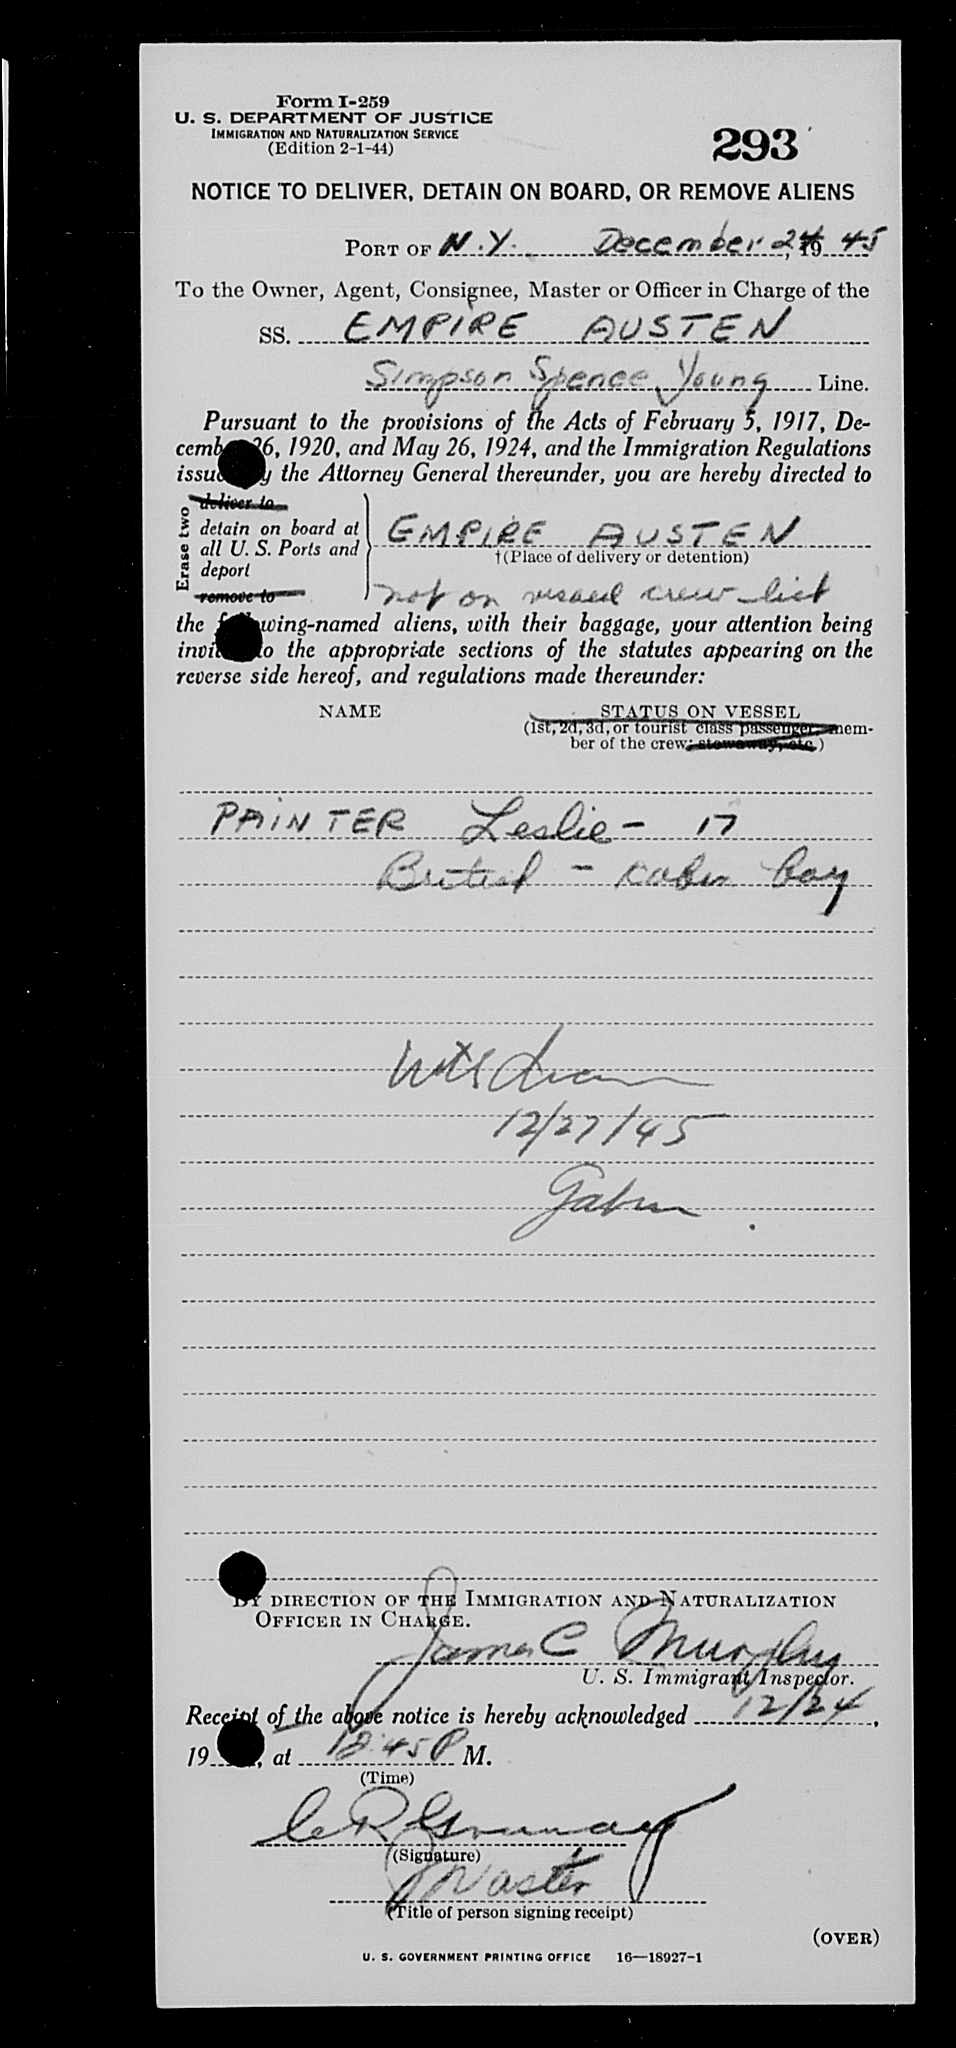 Form I-259
U. S. DEPARTMENT OF JUSTICE
IMMIGRATION AND NATURALIZATION SERVICE
(Edition 2-1-44)
293
NOTICE TO DELIVER, DETAIN ON BOARD, OR REMOVE ALIENS
PORT OF N.Y. December 24, 1945
To the Owner, Agent, Consignee, Master or Officer in Charge of the
SS. EMPIRE AUSTEN
Simpson Spence Young Line.
Pursuant to the provisions of the Acts of February 5, 1917, De-
cemb 26, 1920, and May 26, 1924, and the Immigration Regulations
issued by the Attorney General thereunder, you are hereby directed to
Erase two
deliver to
detain on board at
all U. S. Ports and
deport
remove to
EMPIRE AUSTEN
†(Place of delivery or detention)
not on visaed crew list
the following-named aliens, with their baggage, your attention being
invited to the appropriate sections of the statutes appearing on the
reverse side hereof, and regulations made thereunder:
NAME STATUS ON VESSEL
(1st, 2d, 3d, or tourist class passenger, mem-
ber of the crew, stowaway, etc.)
PAINTER Leslie - 17
British - cabin boy
Withdrawn
12/27/45
BY DIRECTION OF THE IMMIGRATION AND NATURALIZATION
OFFICER IN CHARGE.
James C Murphy
U. S. Immigrant Inspector.
Receipt of the above notice is hereby acknowledged 12/24,
19, at 12:45 P M.
(Time)
(Signature)
Master
(Title of person signing receipt)
(OVER)
U. S. GOVERNMENT PRINTING OFFICE 16—18927-1